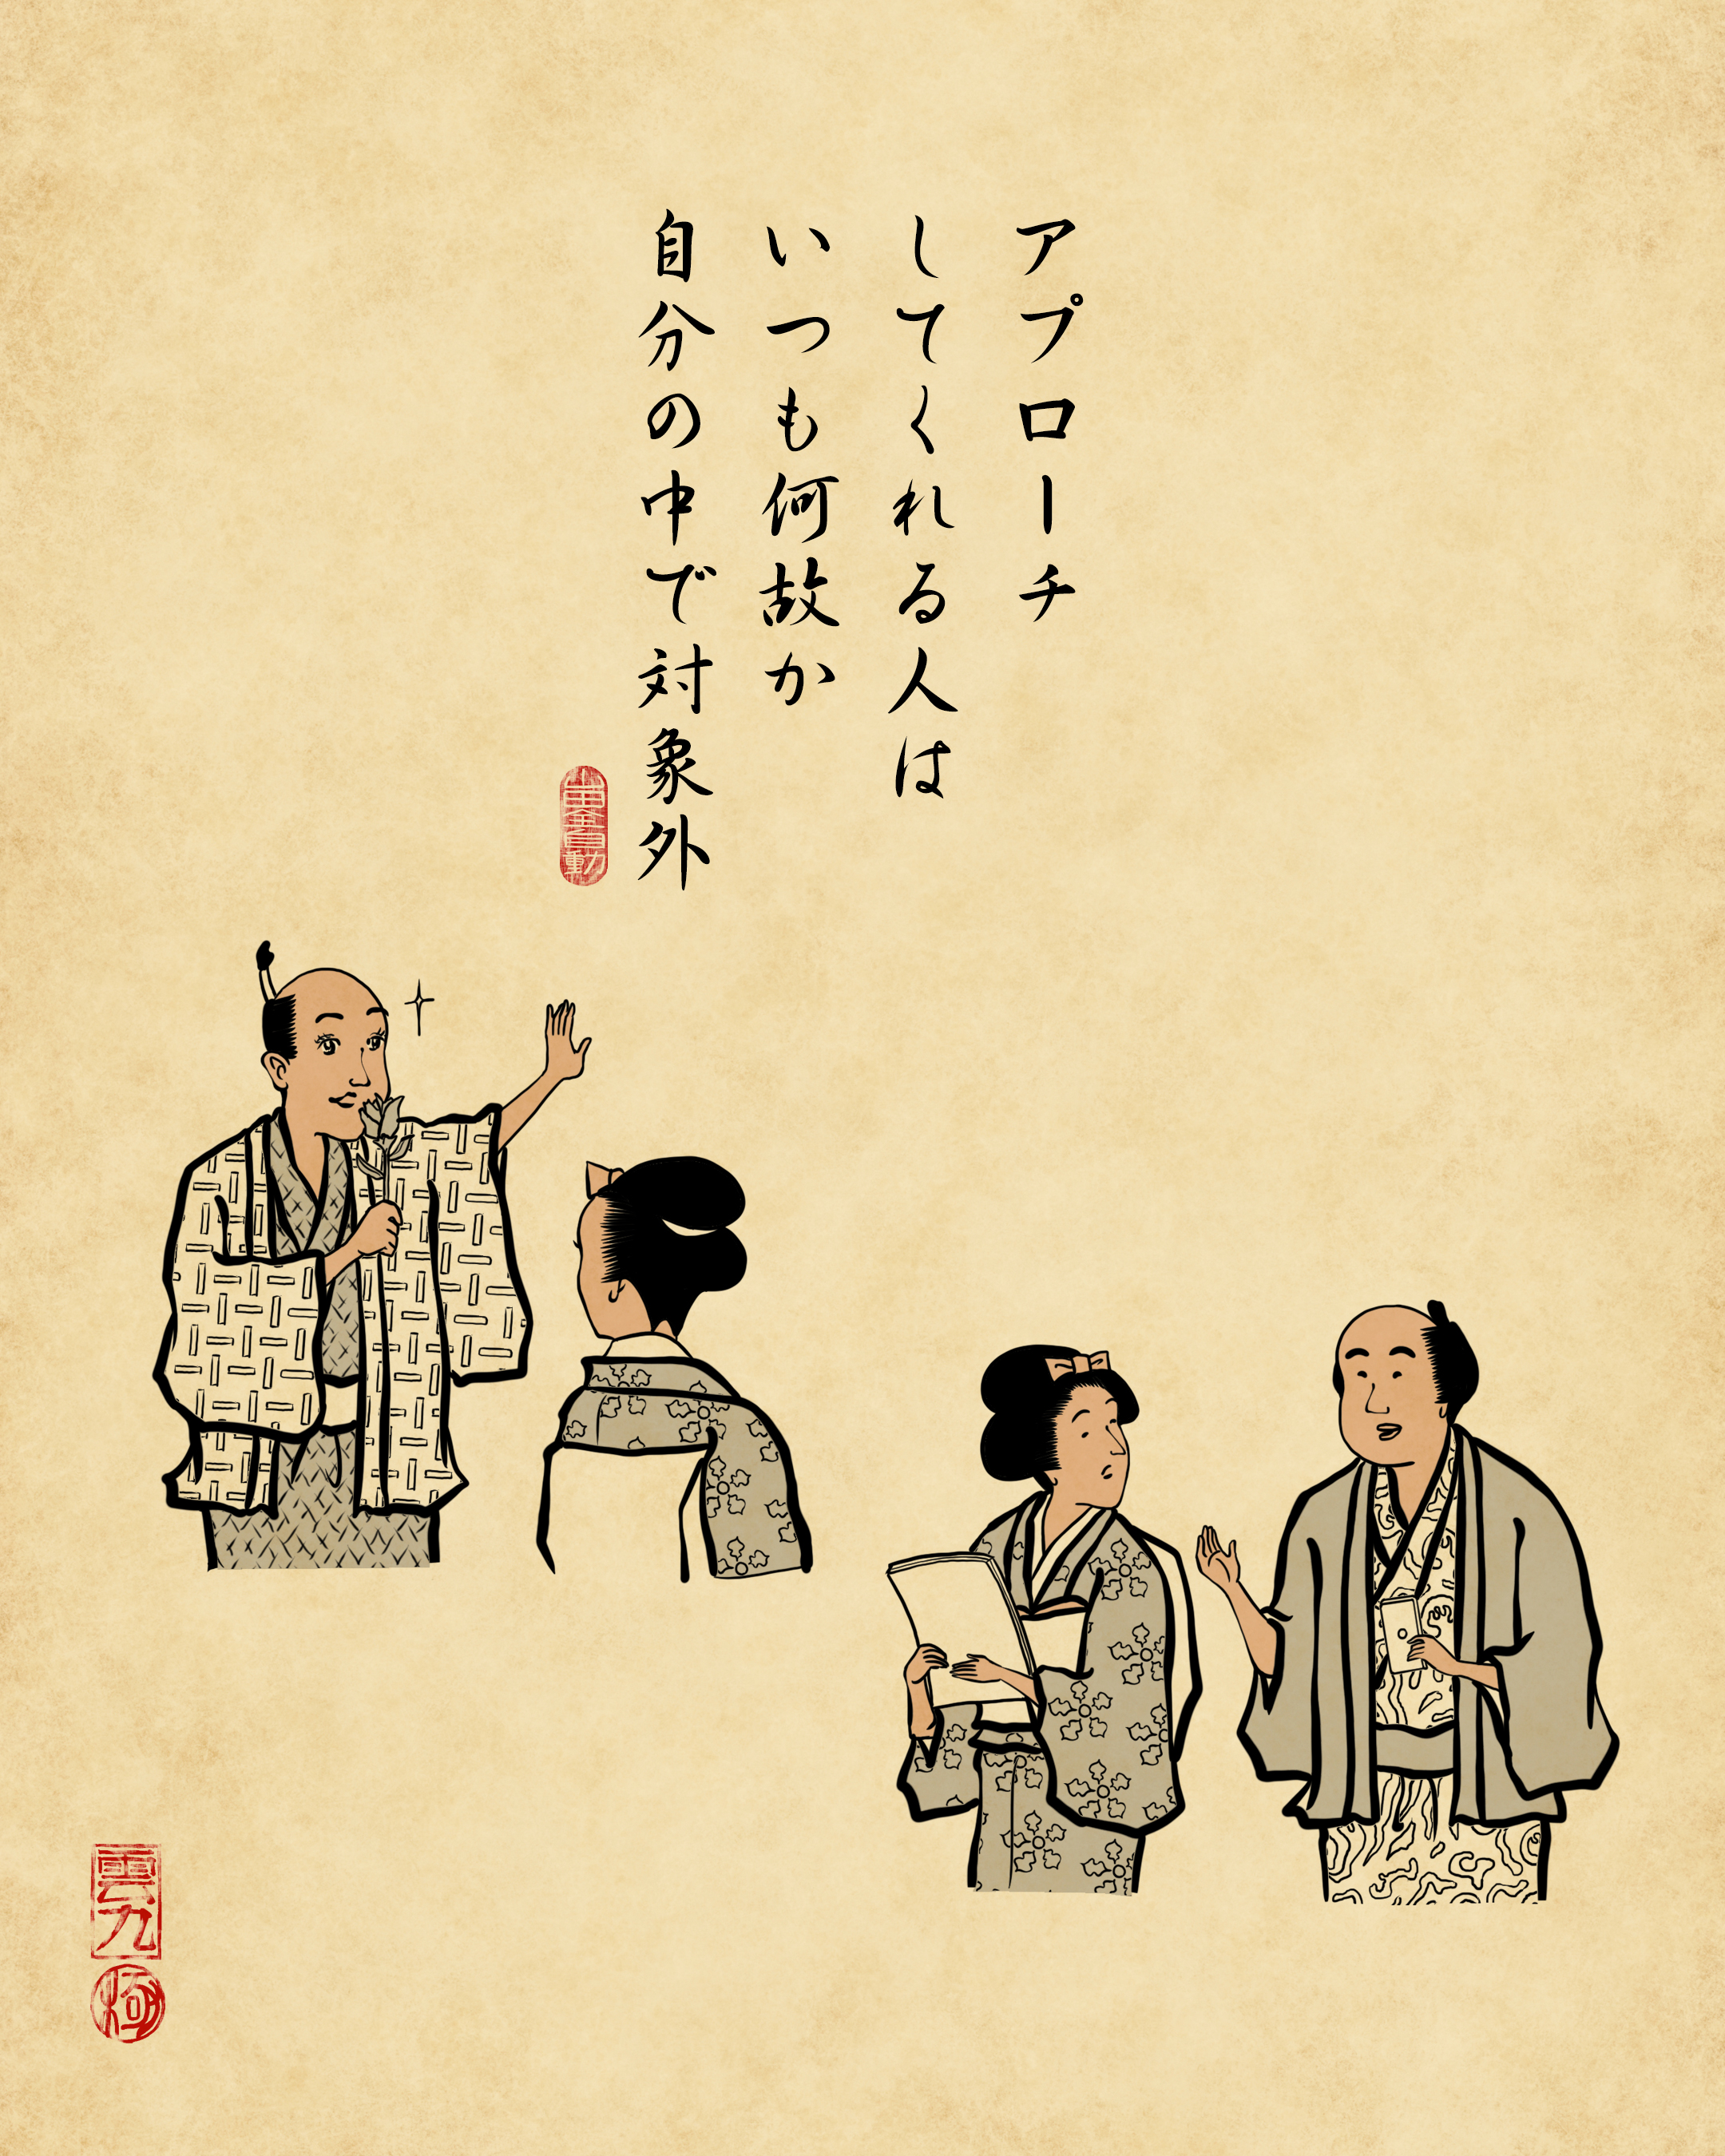 アプローチ
してくれる人は
いつも何故か
自分の中で対象外
雲九
極